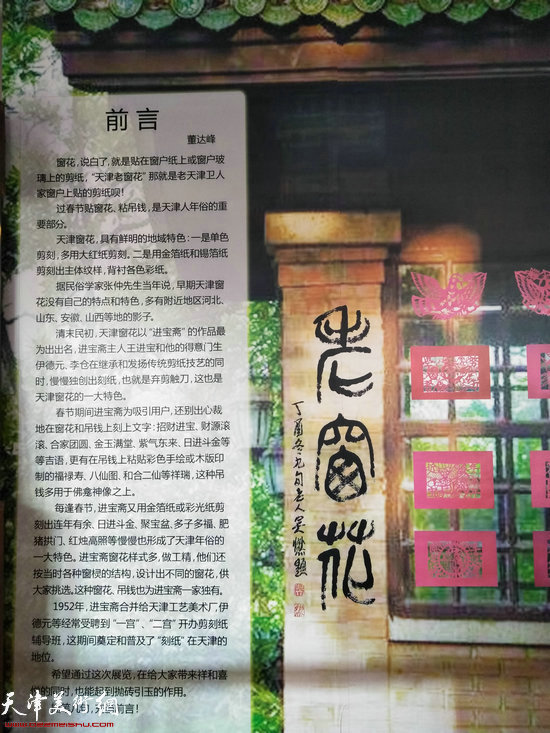 前言
董达峰
窗花，说白了，就是贴在窗户纸上或窗户玻
璃上的剪纸，“天津老窗花”那就是老天津卫人
家窗户上贴的剪纸呗！
过春节贴窗花、粘吊钱，是天津人年俗的重
要部分。
天津窗花，具有鲜明的地域特色：一是单色
剪刻，多用大红纸剪刻。二是用金箔纸和锡箔纸
剪刻出主体纹样，背衬各色彩纸。
据民俗学家张仲先生当年说，早期天津窗
花没有自己的特点和特色，多有附近地区河北、
山东、安徽、山西等地的影子。
清末民初，天津窗花以“进宝斋”的作品最
为出出名，进宝斋主人王进宝和他的得意门生
伊德元、李仓在继承和发扬传统剪纸技艺的同
时，慢慢独创出刻纸，也就是弃剪触刀，这也是
天津窗花的一大特色。
春节期间进宝斋为吸引用户，还别出心裁
地在窗花和吊钱上刻上文字：招财进宝、财源滚
滚、合家团圆、金玉满堂、紫气东来、日进斗金等
等吉语，更有在吊钱上粘贴彩色手绘或木版印
制的福禄寿、八仙图、和合二仙等祥瑞，这种吊
钱多用于佛龛神像之上。
每逢春节，进宝斋又用金箔纸或彩光纸剪
刻出连年有余、日进斗金、聚宝盆、多子多福、肥
猪拱门、红烛高照等慢慢也形成了天津年俗的
一大特色。进宝斋窗花样式多，做工精，他们还
按当时各种窗棂的结构，设计出不同的窗花，供
大家挑选，这种窗花、吊钱也为进宝斋一家独有。
1952年，进宝斋合并给天津工艺美术厂，伊
德元等经常受聘到“一宫”、“二宫”开办剪刻纸
辅导班，这期间奠定和普及了“刻纸”在天津的
地位。
希望通过这次展览，在给大家带来祥和喜
的同时，也能起到抛砖引玉的作用。
前言！
老窗花
丁酉冬九旬老人
天津美术网
www.022meishu.com